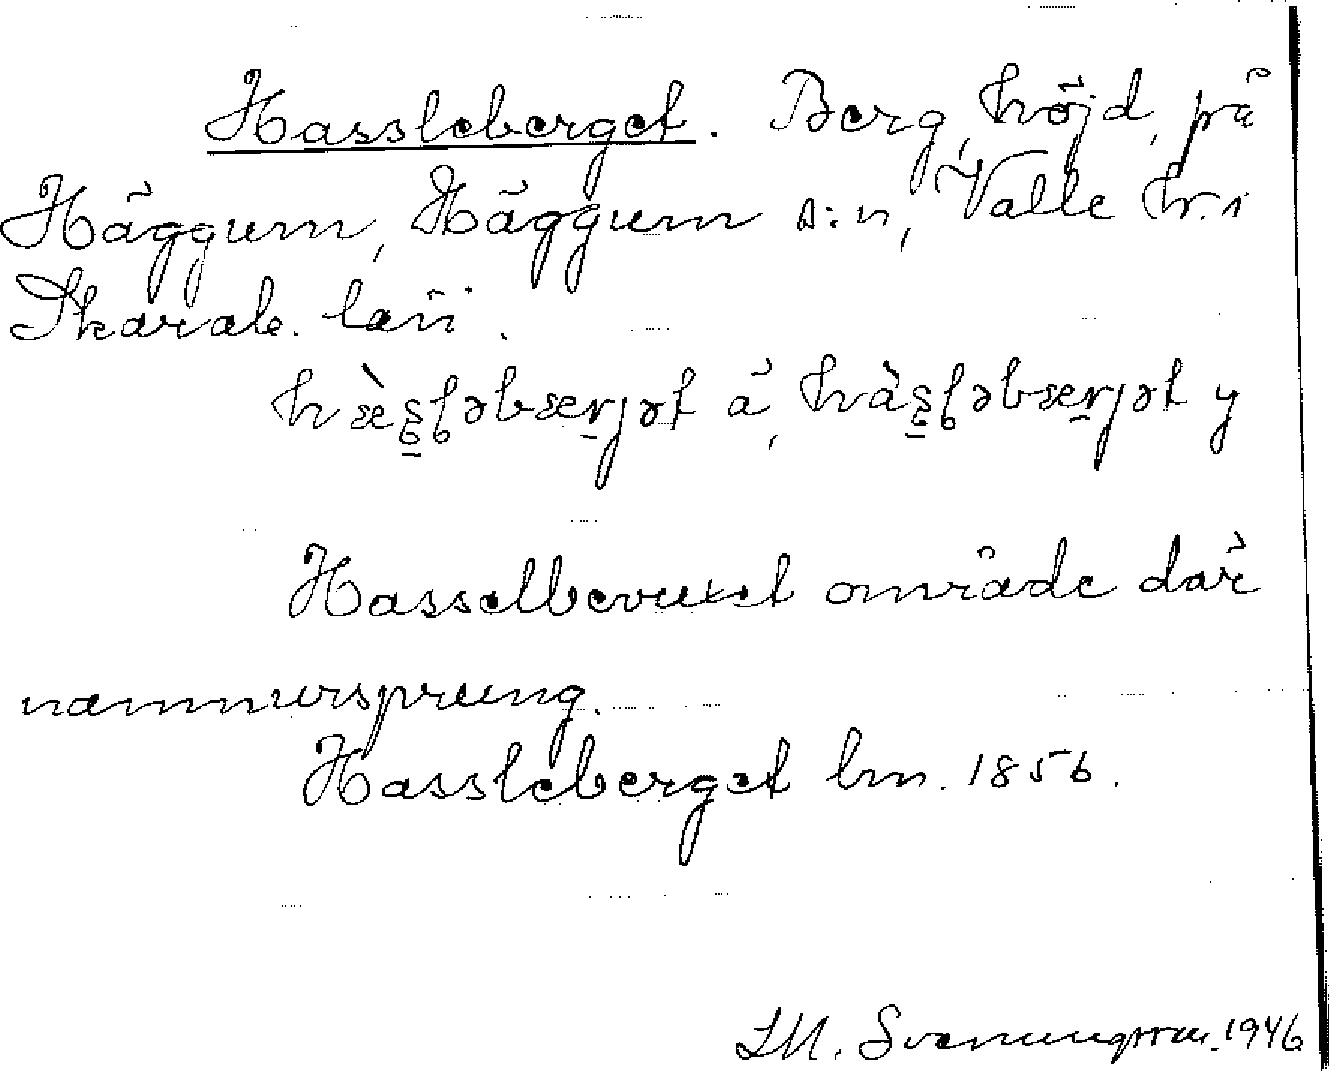 Hassleberget. Berg, höjd, på
Häggum, Häggum s:n, Valle hr.
Skarab. län.
hæ̀s̠ləbær̠jət ä, hàs̠ləbær̠jət y
Hasselbevuxet område där
namnursprung.
Hassleberget lm. 1856.
L.M. Svenungsson. 1946